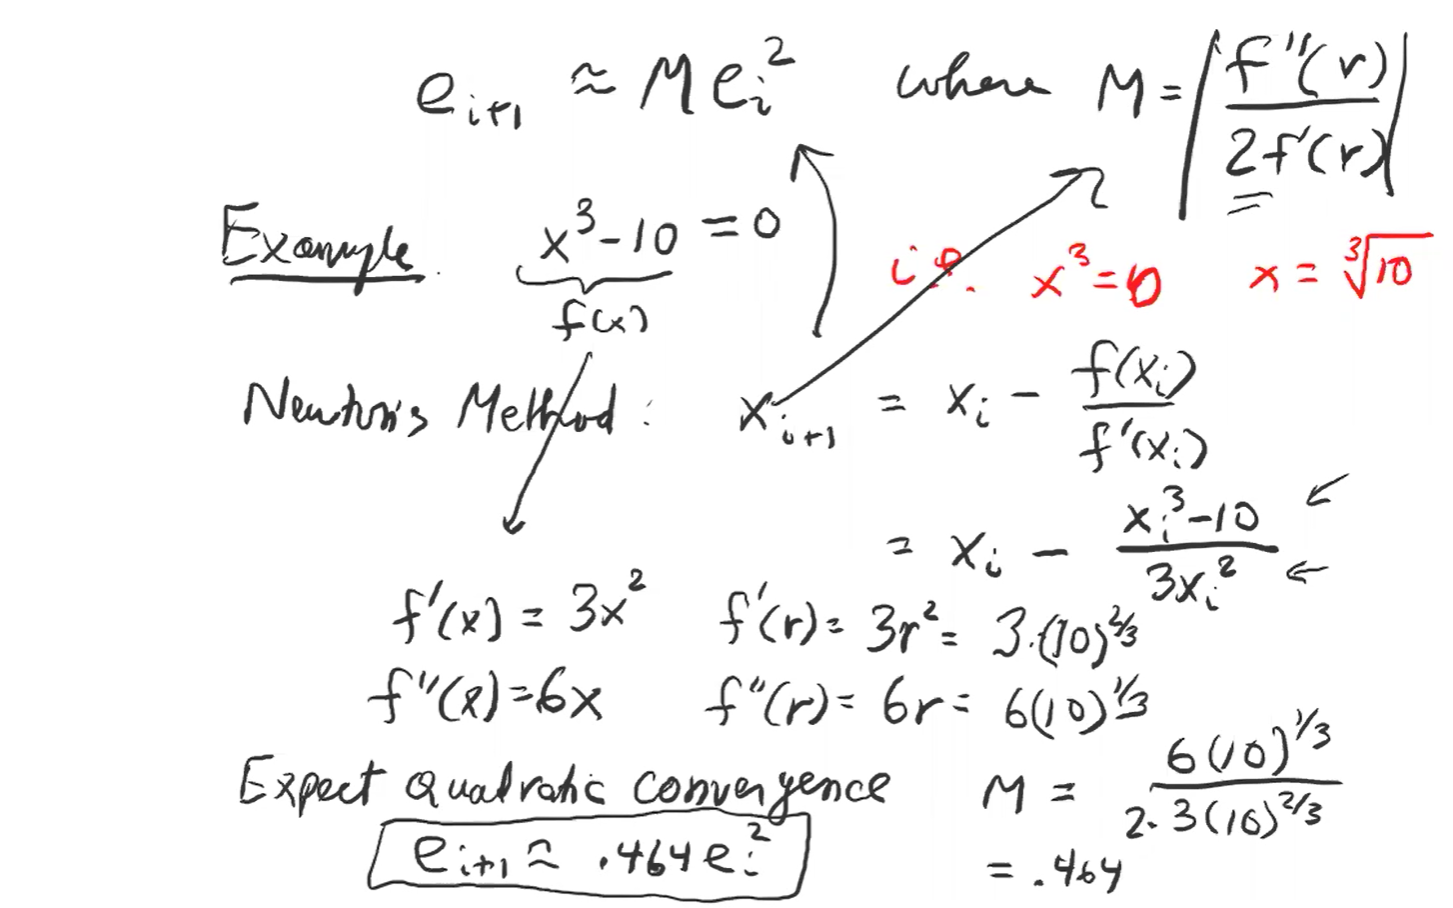 e_{i+1} ≈ M e_i^2 where M = |f''(r) / 2f'(r)|
Example. x^3 - 10 = 0
f(x)
i.e. x^3 = 0 x = ∛10
Newton's Method: x_{i+1} = x_i - f(x_i) / f'(x_i)
= x_i - (x_i^3 - 10) / 3x_i^2
f'(x) = 3x^2 f'(r) = 3r^2 = 3·(10)^{2/3}
f''(x) = 6x f''(r) = 6r = 6(10)^{1/3}
Expect quadratic convergence M = 6(10)^{1/3} / 2·3(10)^{2/3}
e_{i+1} ≈ .464 e_i^2 = .464